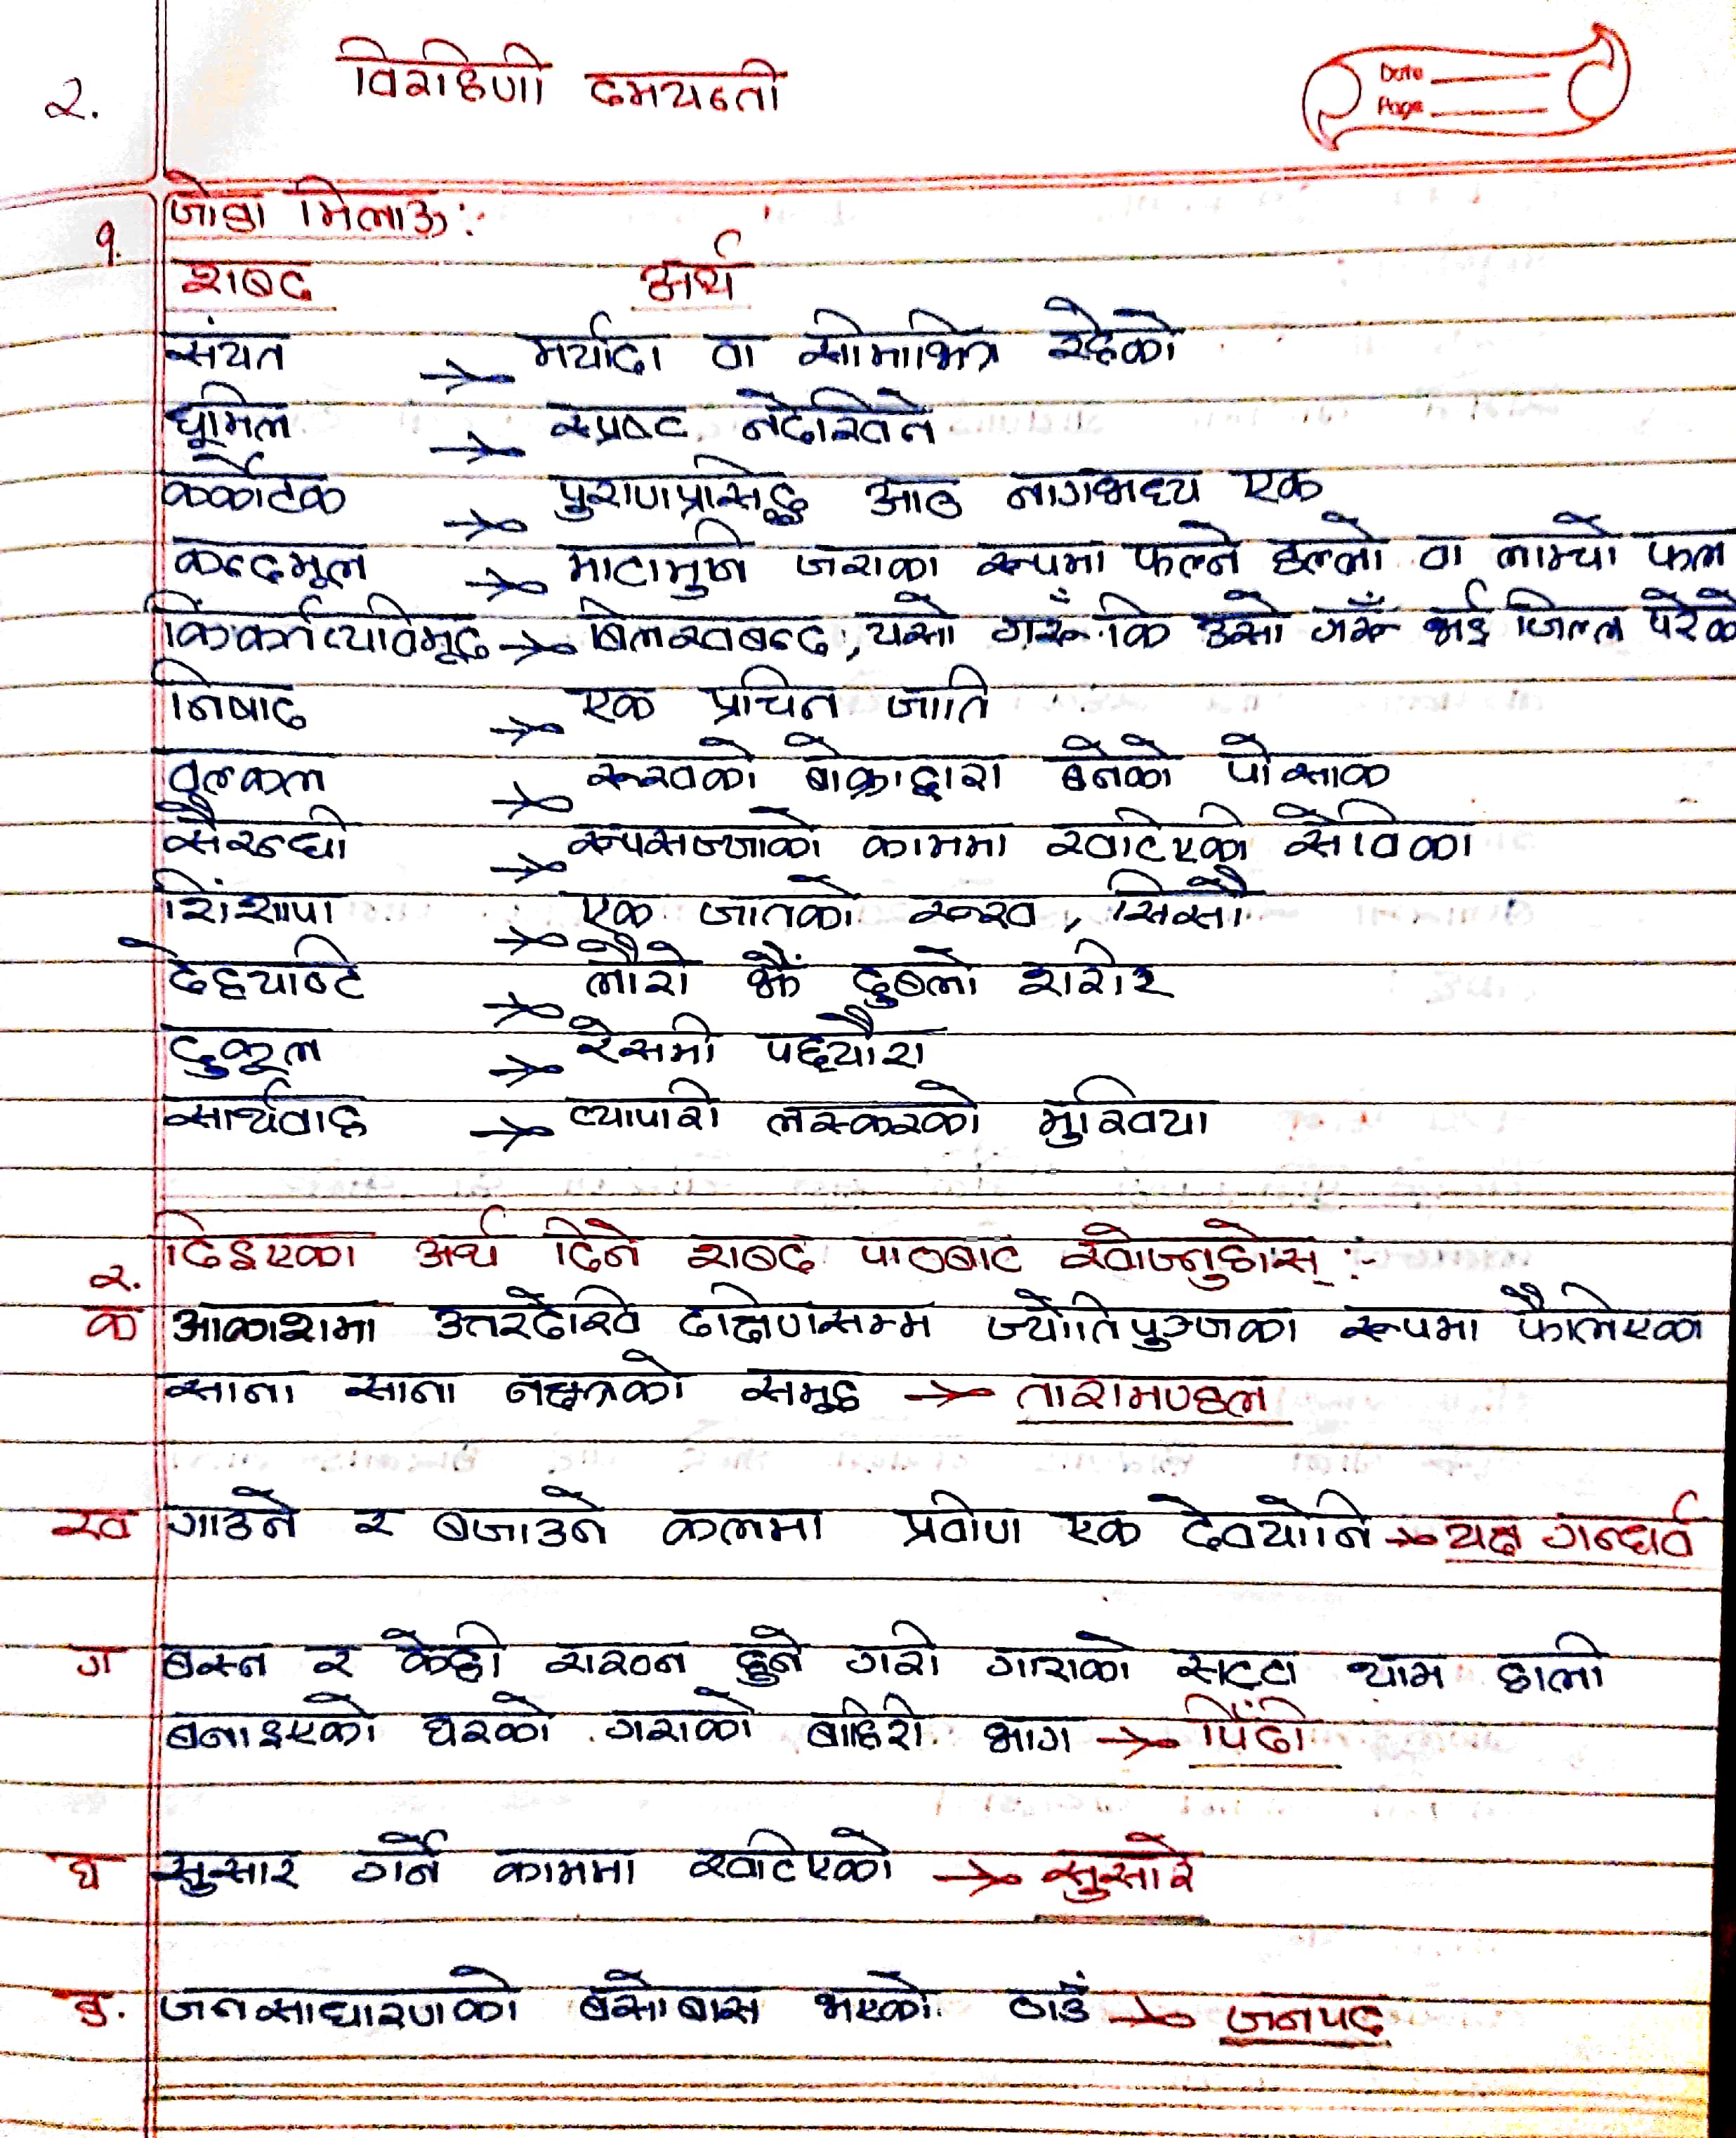 २. विरहिणी दमयन्ती
Date
Page
१. जोडा मिलाऊ :
शब्द अर्थ
संयत → मर्यादा वा सीमाभित्र रहेको
धूमिल → स्प्रष्ट नदेखिने
कर्कोटक → पुराणप्रसिद्ध आठ नागमध्य एक
कन्दमूल → माटामुनि जराका रूपमा फल्ने डल्लो वा लाम्चो फल
किंकर्तव्यविमूढ → बिलखबन्द, यसो गरूँ कि उसो गरूँ भई जिल्ल परेको
निषाद → एक प्रचिन जाति
वल्कल → रूखको बोक्राद्वारा बनेको पोसाक
सैरन्ध्री → रूपसज्जाको काममा खटिएकी सेविका
शिंशपा → एक जातको रूख, सिसौ
देहयष्टि → लौरो झैं दुब्लो शरीर
दुकूल → रेसमी पछ्यौरा
सार्थवाह → व्यापारी लस्करको मुखिया
२. दिइएका अर्थ दिने शब्द पाठबाट खोज्नुहोस् :-
क आकाशमा उत्तरदेखि दक्षिणसम्म ज्योतिपुञ्जका रूपमा फैलिएका
साना साना नक्षत्रको समूह → तारामण्डल
ख गाउने र बजाउने कलमा प्रवीण एक देवयोनि → यक्ष गन्धर्व
ग बस्न र केही राख्न हुने गरी गाराको सट्टा थाम हाली
बनाइएको घरको गराको बाहिरी भाग → पिँढी
घ सुसार गर्ने काममा खटिएको → सुसारे
ङ. जनसाधारणको बसोबास भएको ठाउँ → जनपद